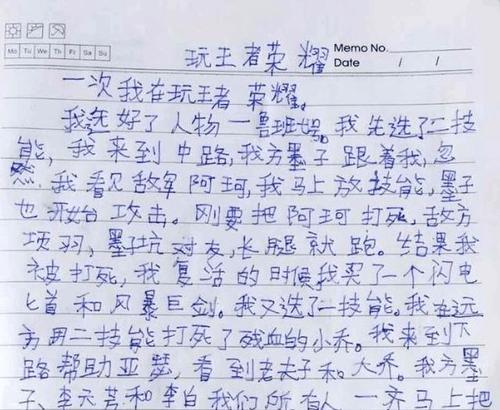 Mo Tu We Th Fr Sa Su
Memo No.
Date / /
玩王者荣耀
一次我在玩王者荣耀。
我选好了人物一鲁班号。我先选了二技
能,我来到中路,我方墨子跟着我,忽
然我看见敌军阿珂,我马上放技能,墨子
也开始攻击。刚要把阿珂打死,敌方
项羽,墨子坑对友,长腿就跑。结果我
被打死,我复活的时候我买了一个闪电
匕首和风暴巨剑。我又选了二技能。我在远
方用二技能打死了残血的小乔。我来到下
路帮助亚瑟,看到老夫子和大乔。我方墨
子、李元芳和李白我们所有人一齐马上把